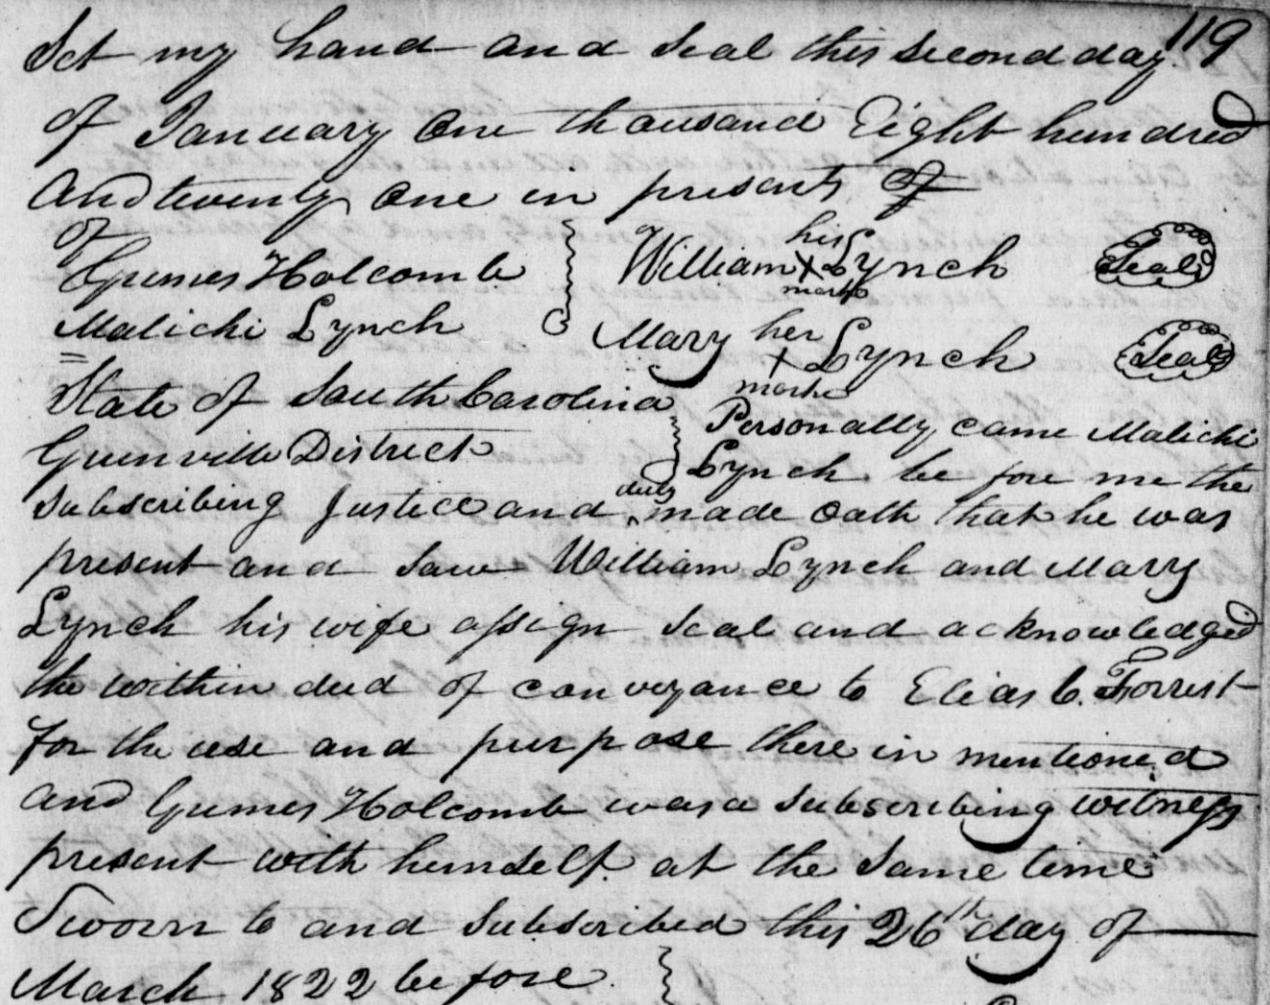 119
Set my hand and seal this second day
of January One thousand Eight hundred
and twenty one in presents of
of
Grimes Holcomb
William his X mark Lynch Seal
Malichi Lynch
Mary her X mark Lynch Seal
State of South Carolina
Greenville District
Personally came Malichi
Lynch be fore me the
subscribing Justice and duly made Oath that he was
present and saw William Lynch and Mary
Lynch his wife assign seal and acknowledged
the within deed of conveyance to Elias C. Forrest
for the use and purpose there in mentioned
and Grimes Holcomb was a subscribing witness
present with himself at the same time
Sworn to and subscribed this 26th day of
March 1822 before